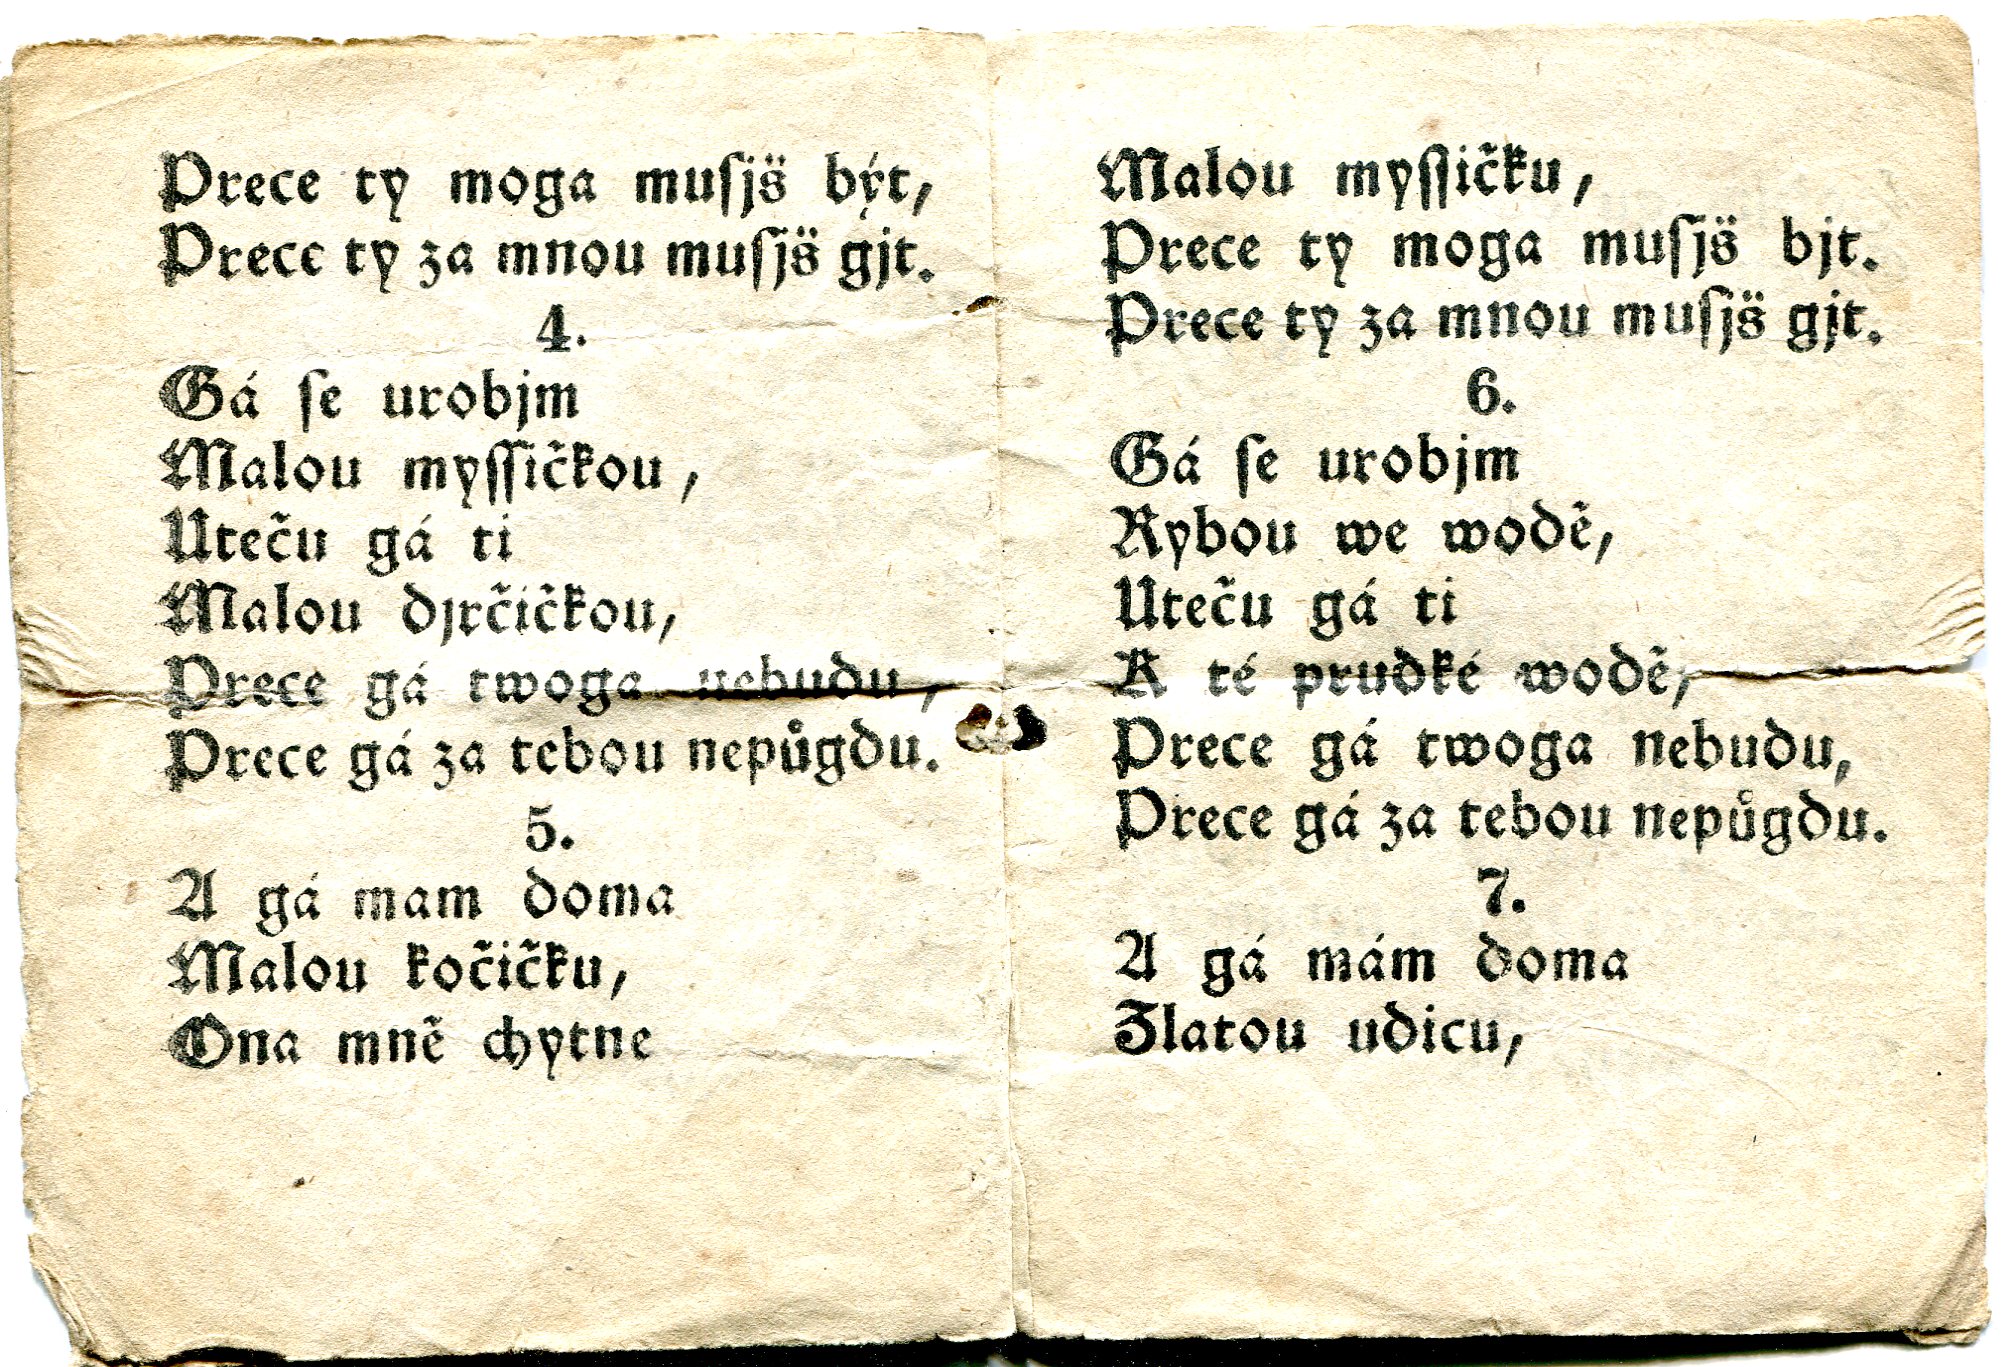 Prece ty moga muſjš být,
Prece ty za mnou muſjš gjt.
4.
Gá ſe urobjm
Malou myſſičkou,
Uteču gá ti
Malou djrčičkou,
Prece gá twoga nebudu,
Prece gá za tebou nepůgdu.
5.
A gá mam doma
Malou kočičku,
Ona mně chytne
Malou myſſičku,
Prece ty moga muſjš bjt.
Prece ty za mnou muſjš gjt.
6.
Gá ſe urobjm
Rybou we wodě,
Uteču gá ti
K té prudké wodě,
Prece gá twoga nebudu,
Prece gá za tebou nepůgdu.
7.
A gá mám doma
Zlatou udicu,